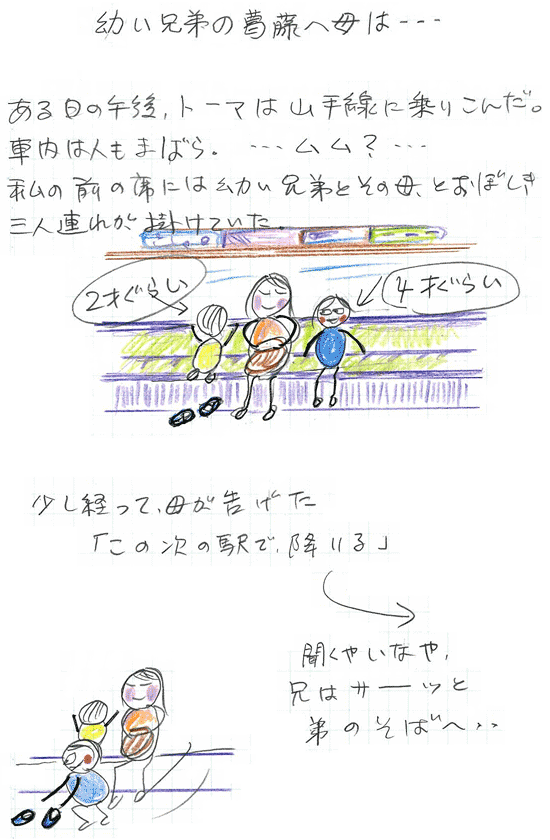 幼い兄弟の葛藤へ母は---
ある日の午後、トーマは山手線に乗りこんだ。
車内は人もまばら。 …ムム？…
私の前の席には幼い兄弟とその母、とおぼしき
三人連れが、掛けていた。
2才ぐらい
4才ぐらい
少し経って、母が告げた
「この次の駅で、降りる」
聞くやいなや、
兄はサーッと
弟のそばへ・・